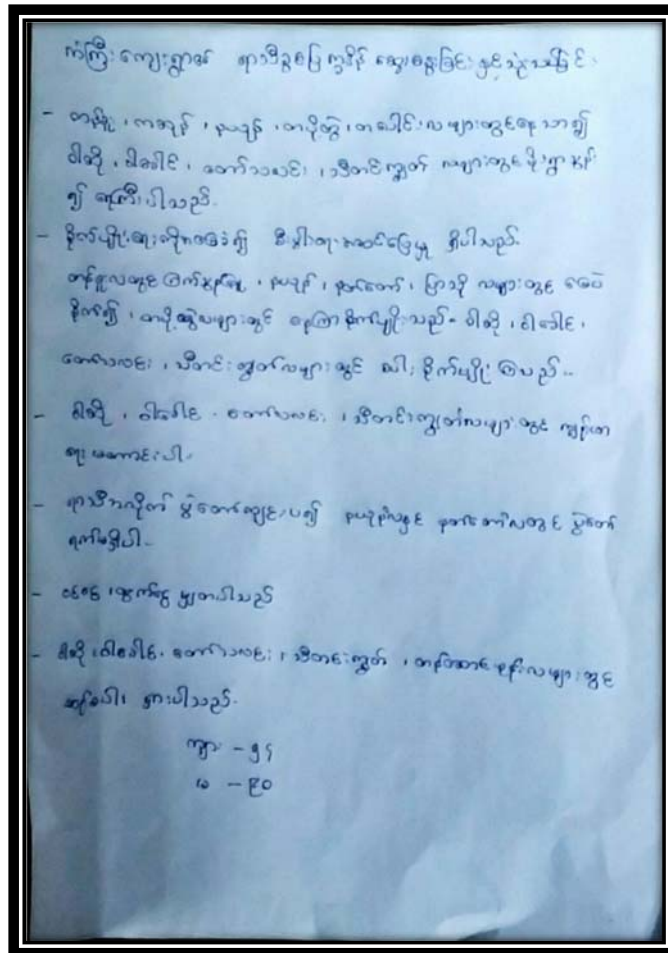 ကံကြီး ကျေးရွာ၏ ရာသီဥပဒြေက္ခဒိန် ဆွေးနွေးခြင်း နှင့် သုံးသပ်ခြင်း
- တန်ခူး ၊ ကဆုန် ၊ နယုန် ၊ တပို့တွဲ ၊ တပေါင်း လများတွင် နေသာ၍
ဝါဆို ၊ ဝါခေါင် ၊ တော်သလင်း ၊ သီတင်းကျွတ် လများတွင် မိုးရွာသွန်း
၍ ရေကြီးပါသည်။
- စိုက်ပျိုးရေးကိုအခြေခံ၍ စီးပွါးရေးအဆင်ပြေမှု ရှိပါသည်။
တန်ခူးလတွင် ၊ နယုန် ၊ နတ်တော် ၊ ပြာသို လများတွင် မြေပဲ
စိုက်၍ ၊ တပို့တွဲလများတွင် နေကြာစိုက်ပျိုးသည်- ဝါဆို ၊ ဝါခေါင် ၊
တော်သလင်း ၊ သီတင်းကျွတ်လများတွင် စပါး စိုက်ပျိုးကြသည်..
- ဝါဆို ၊ ဝါခေါင် - တော်သလင်း ၊ သီတင်းကျွတ်လများတွင် ကျန်းမာ
ရေး မကောင်းပါ။
- ရာသီအလိုက် ပွဲတော်ကျင်းပ၍ နယုန်လနှင့် နတ်တော်လတွင် ပွဲတော်
ရက်မရှိပါ-
- ဝင်ငွေ ၊ ထွက်ငွေ မျှတပါသည်
- ဝါဆို ၊ ဝါခေါင် ၊ တော်သလင်း ၊ သီတင်းကျွတ် ၊ တန်ဆောင်မုန်းလများတွင်
ရှားပါသည်-
ကျား - ၅၄
မ - ၉၀